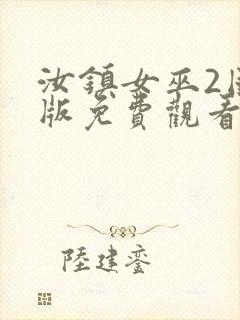 汝鎮女巫2
版免費觀看
陸建鑾